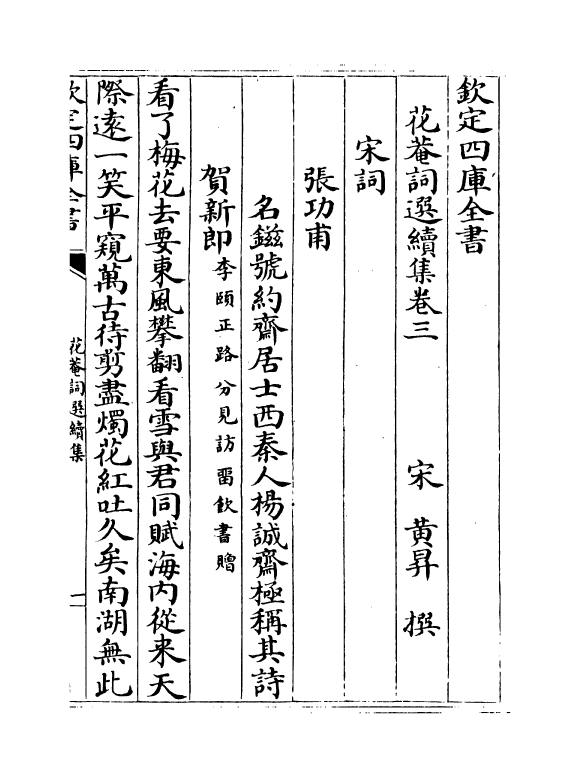 欽定四庫全書
花菴詞選續集卷三
宋 黄昇 撰
宋詞
張功甫
名鎡號約齋居士西秦人楊誠齋極稱其詩
賀新郎李頤正路分見訪留飲書贈
看了梅花去要東風攀翻看雪與君同賦海内從来天
際遠一笑平窺萬古待剪盡燭花紅吐久矣南湖無此
欽定四庫全書
花菴詞選續集
一